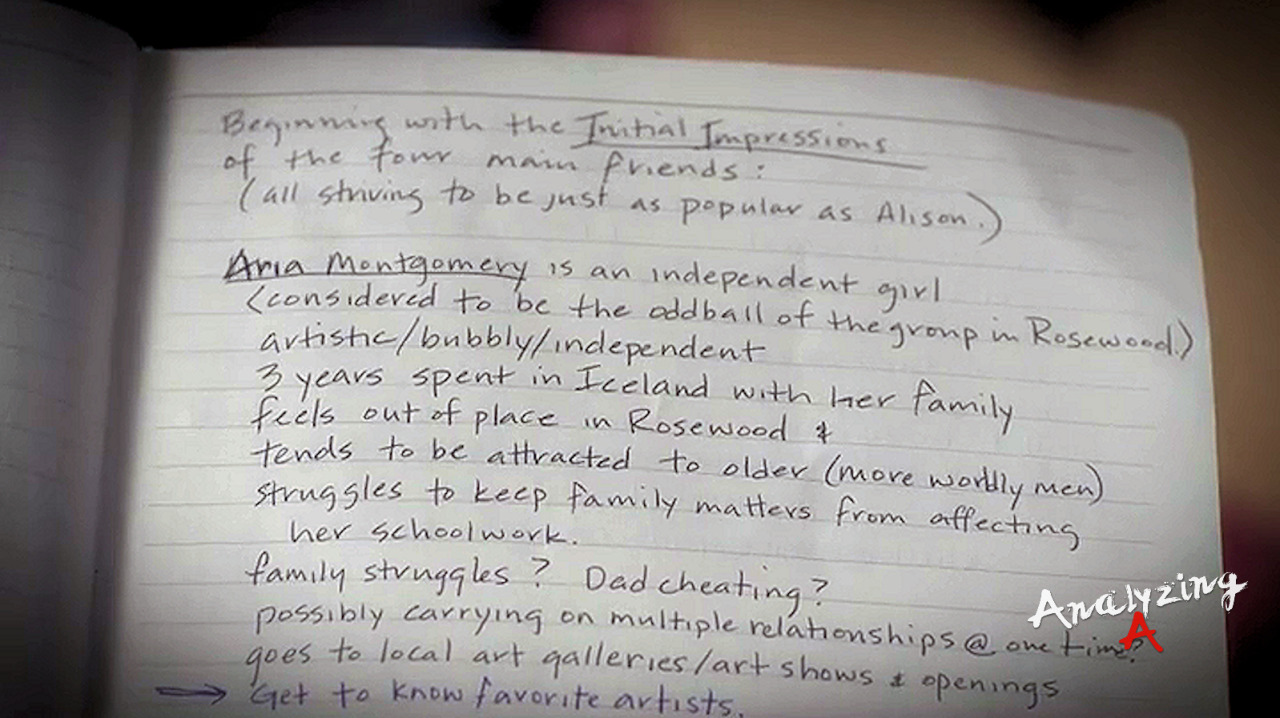 Beginning with the Initial Impressions
of the four main friends:
(all striving to be just as popular as Alison.)
Aria Montgomery is an independent girl
(considered to be the oddball of the group in Rosewood.)
artistic/bubbly/independent
3 years spent in Iceland with her family
feels out of place in Rosewood &
tends to be attracted to older (more worldly men)
struggles to keep family matters from affecting
her schoolwork.
family struggles? Dad cheating?
possibly carrying on multiple relationships @ one time?
goes to local art galleries/art shows & openings
→ Get to know favorite artists.
Analyzing
A